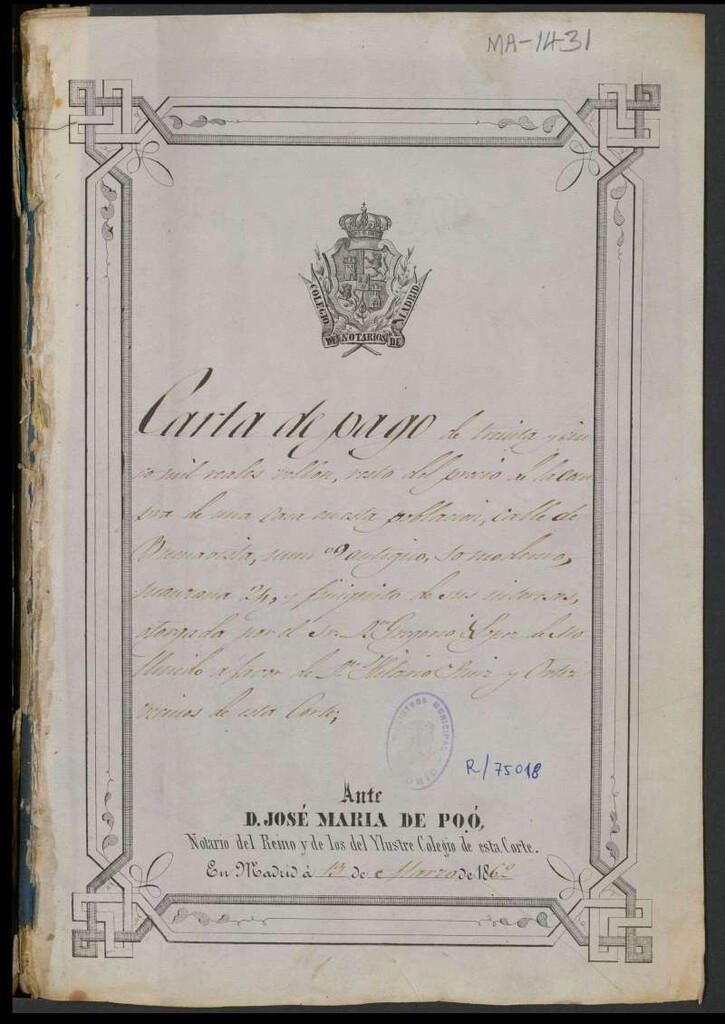 MA-1431
COLEGIO DE NOTARIOS DE MADRID
Carta de pago de treinta y cin
co mil reales vellon, resto del precio de la com
pra de una casa en esta poblacion, calle de
Buenavista, num.º 9 antiguo, moderno,
manzana 24, y finiquito de sus intereses,
otorgada por el Sr. Dn. Gregorio Lopez de Mo
llinedo á favor de Dn. Hilario Ruiz y Ortiz
vecinos de esta Corte;
MUNICIPAL
R/75018
Ante
D. JOSÉ MARIA DE POÓ,
Notario del Reino y de los del Ylustre Colegio de esta Corte.
En Madrid á 13 de Marzo de 1862